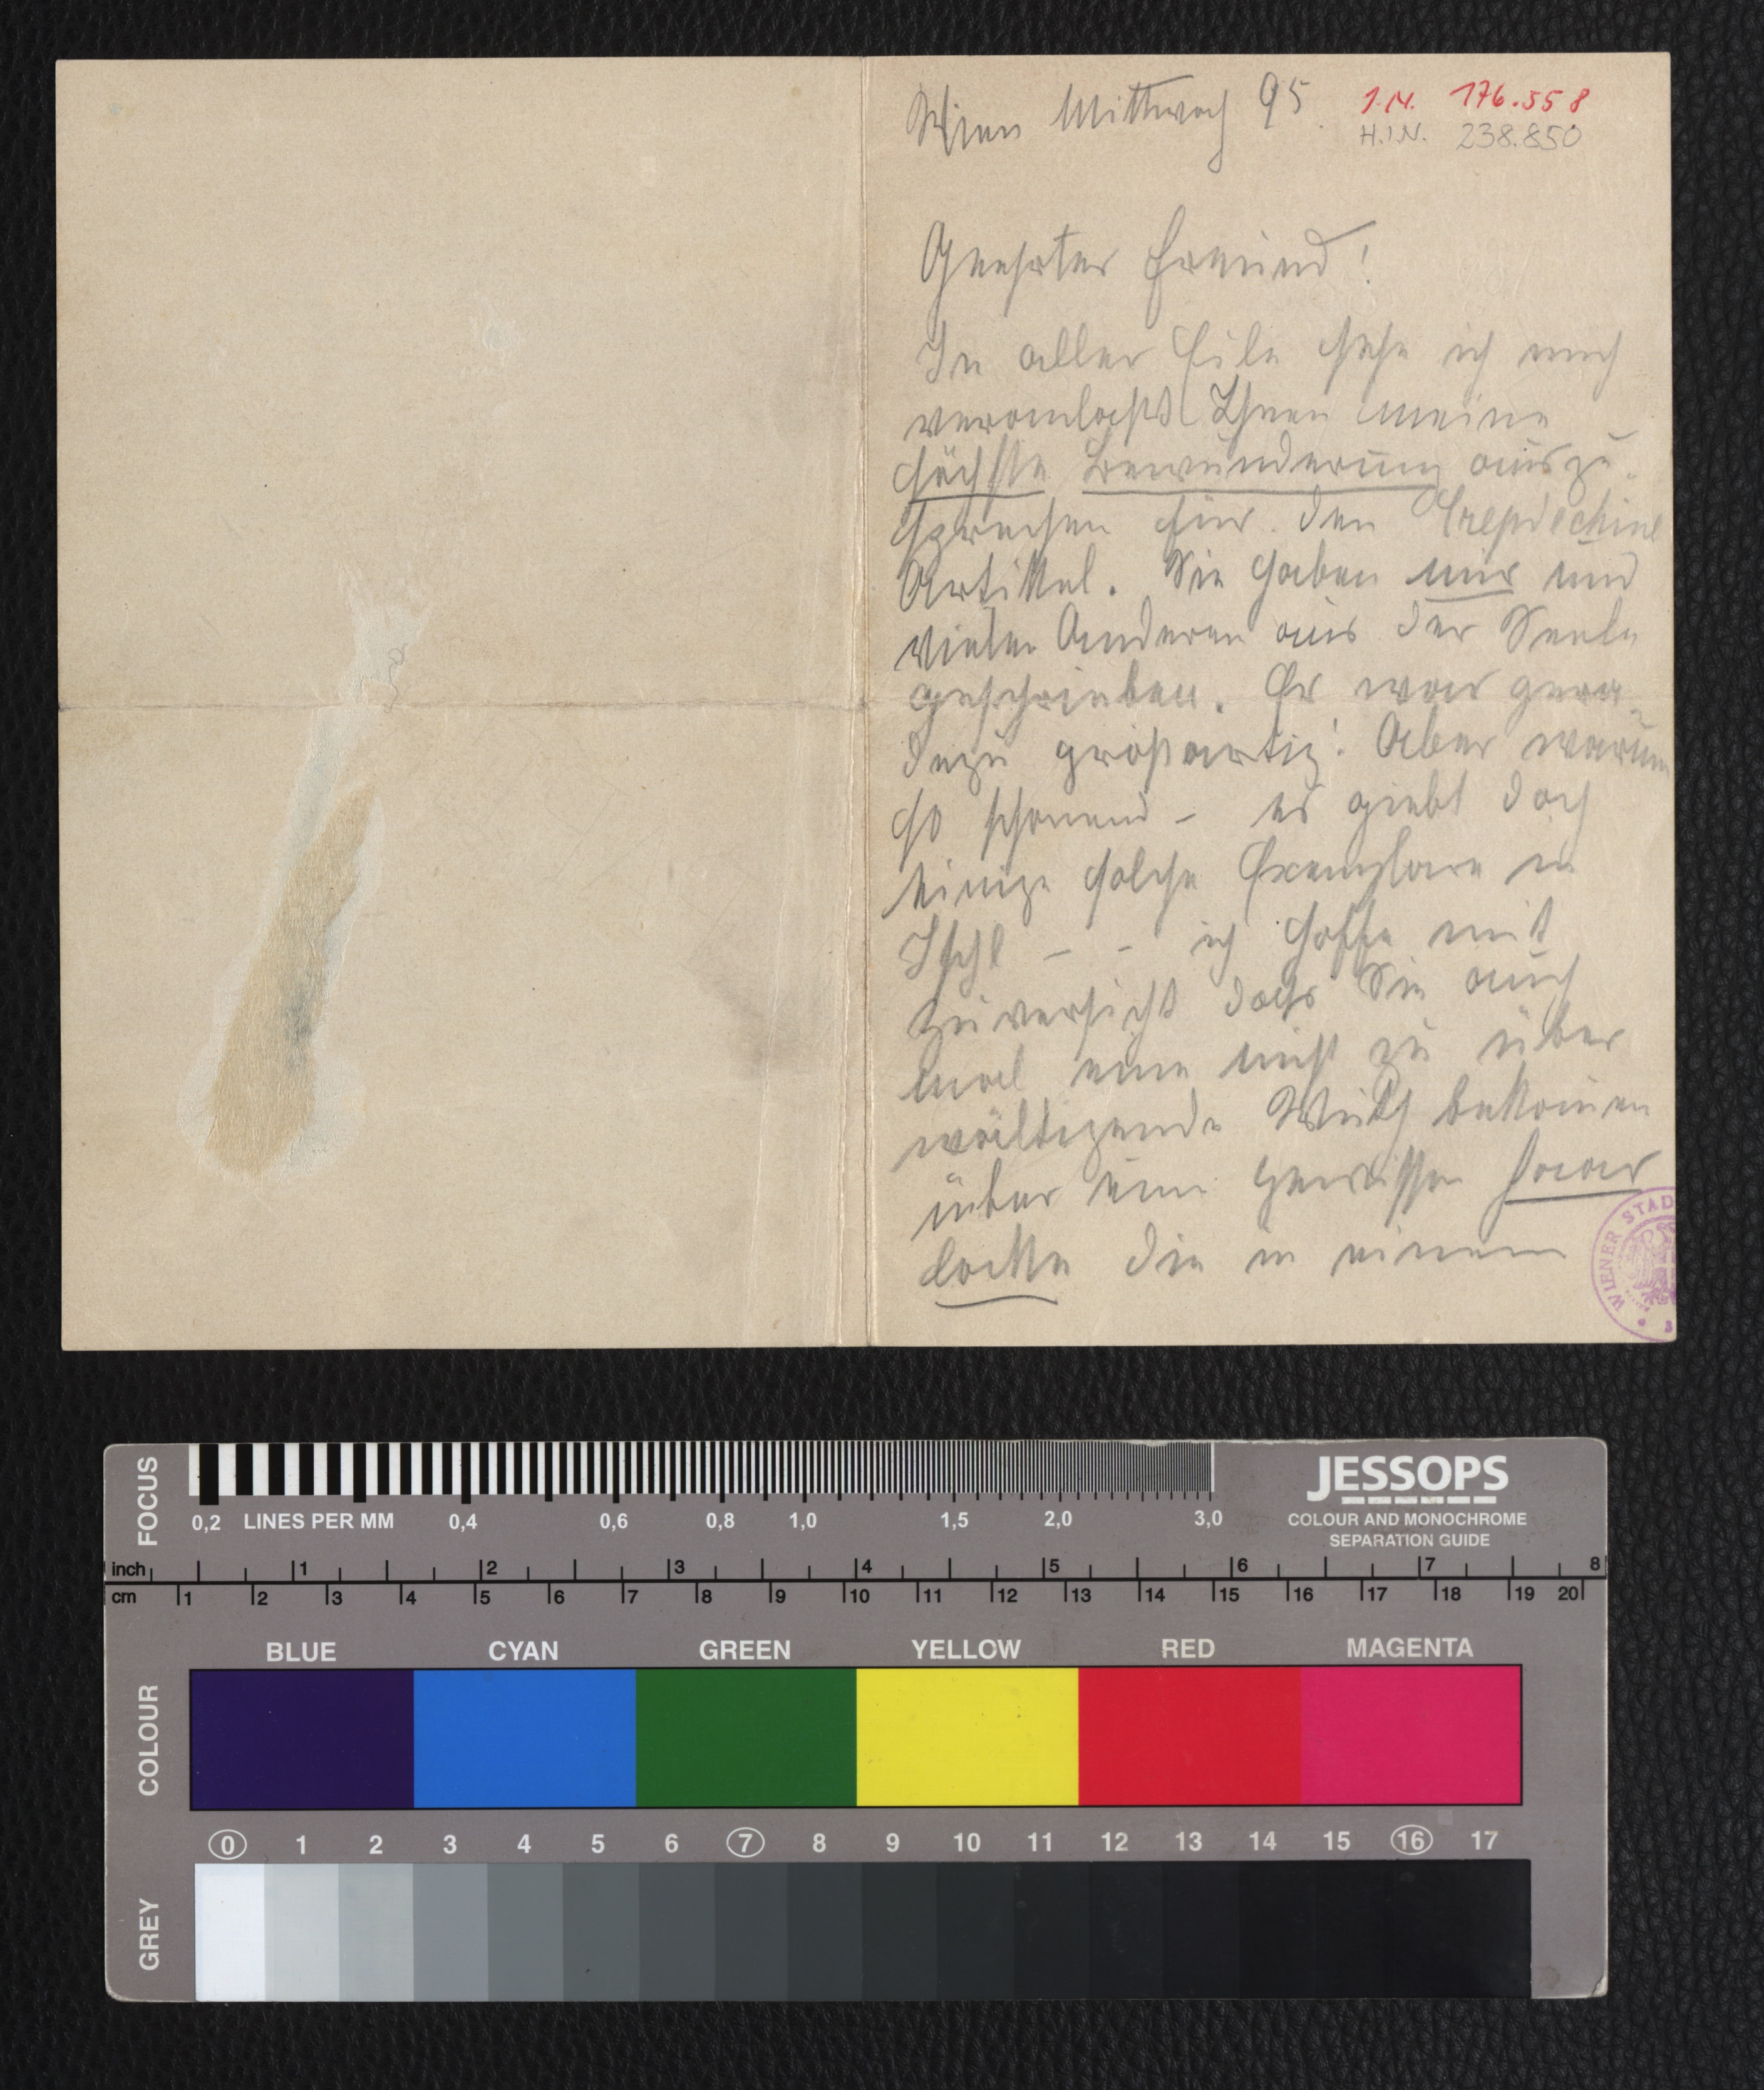 Wien Mittwoch 95.
I.N. 176.558
H.I.N. 238.850
Geehrter Freund!
In aller Eile sehe ich mich
veranlasst Ihnen meine
höchste Bewunderung auszu-
sprechen für den Crepdechine
Artikkel. Sie haben mir und
vielen Anderen aus der Seele
geschrieben. Er war gera-
dezu großartig! Aber warum
so schonend – es giebt doch
einige solche Exemplare in
Ischl – – ich hoffe mit
Zuversicht dass Sie auch
mal eine nicht zu über
wältigende Wuth bekom̄en
über eine gewisse Haar
locke die in einem
WIENER STAD
FOCUS
0,2 LINES PER MM 0,4 0,6 0,8 1,0 1,5 2,0 3,0
JESSOPS
COLOUR AND MONOCHROME
SEPARATION GUIDE
inch 1 2 3 4 5 6 7 8
cm 1 2 3 4 5 6 7 8 9 10 11 12 13 14 15 16 17 18 19 20
COLOUR
BLUE CYAN GREEN YELLOW RED MAGENTA
0 1 2 3 4 5 6 7 8 9 10 11 12 13 14 15 16 17
GREY